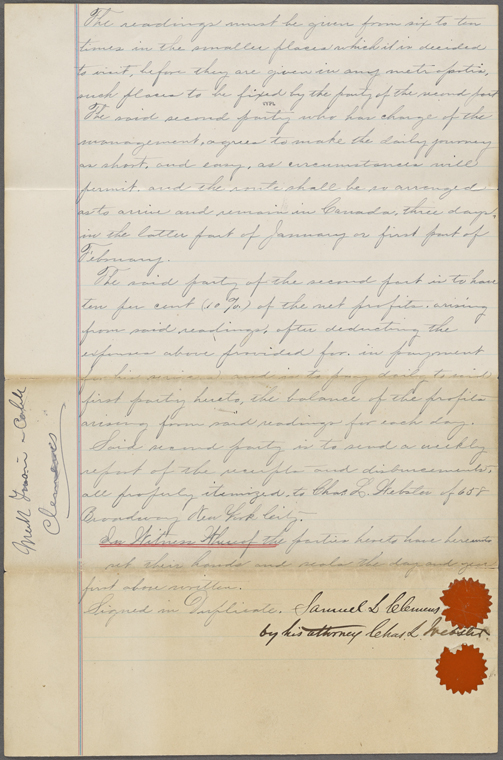 The readings must be given from six to ten
times in the smaller places which it is decided
to visit, before they are given in any metropolis,
such places to be fixed by the party of the second part
The said second party who has charge of the
management, agrees to make the daily journey
as short, and easy, as circumstances will
permit. and the route shall be so arranged
as to arrive and remain in Canada, three days,
in the latter part of January or first part of
February.
The said party of the second part is to have
ten per cent (10%) of the net profits. arising
from said readings, after deducting the
expenses above provided for. in payment
for his services and is to pay daily to said
first party hereto, the balance of the profits
arising from said readings for each day.
Said second party is to send a weekly
report of the receipts and disbursements,
all properly itemized, to Chas L. Webster of 658
Broadway New York City.
In Witness Whereof the parties hereto have hereunto
set their hands and seals the day and year
first above written.
Signed in Duplicate. Samuel L Clemens
by his attorney Chas L Webster.
Mark Twain - Cable
Clemens